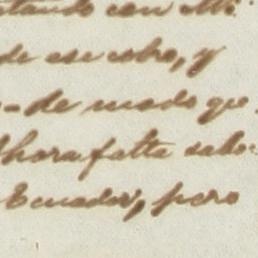 tando con Mr.
de ese cobo, y
de modo que
Ahora falta sabe-
Ecuador, pero